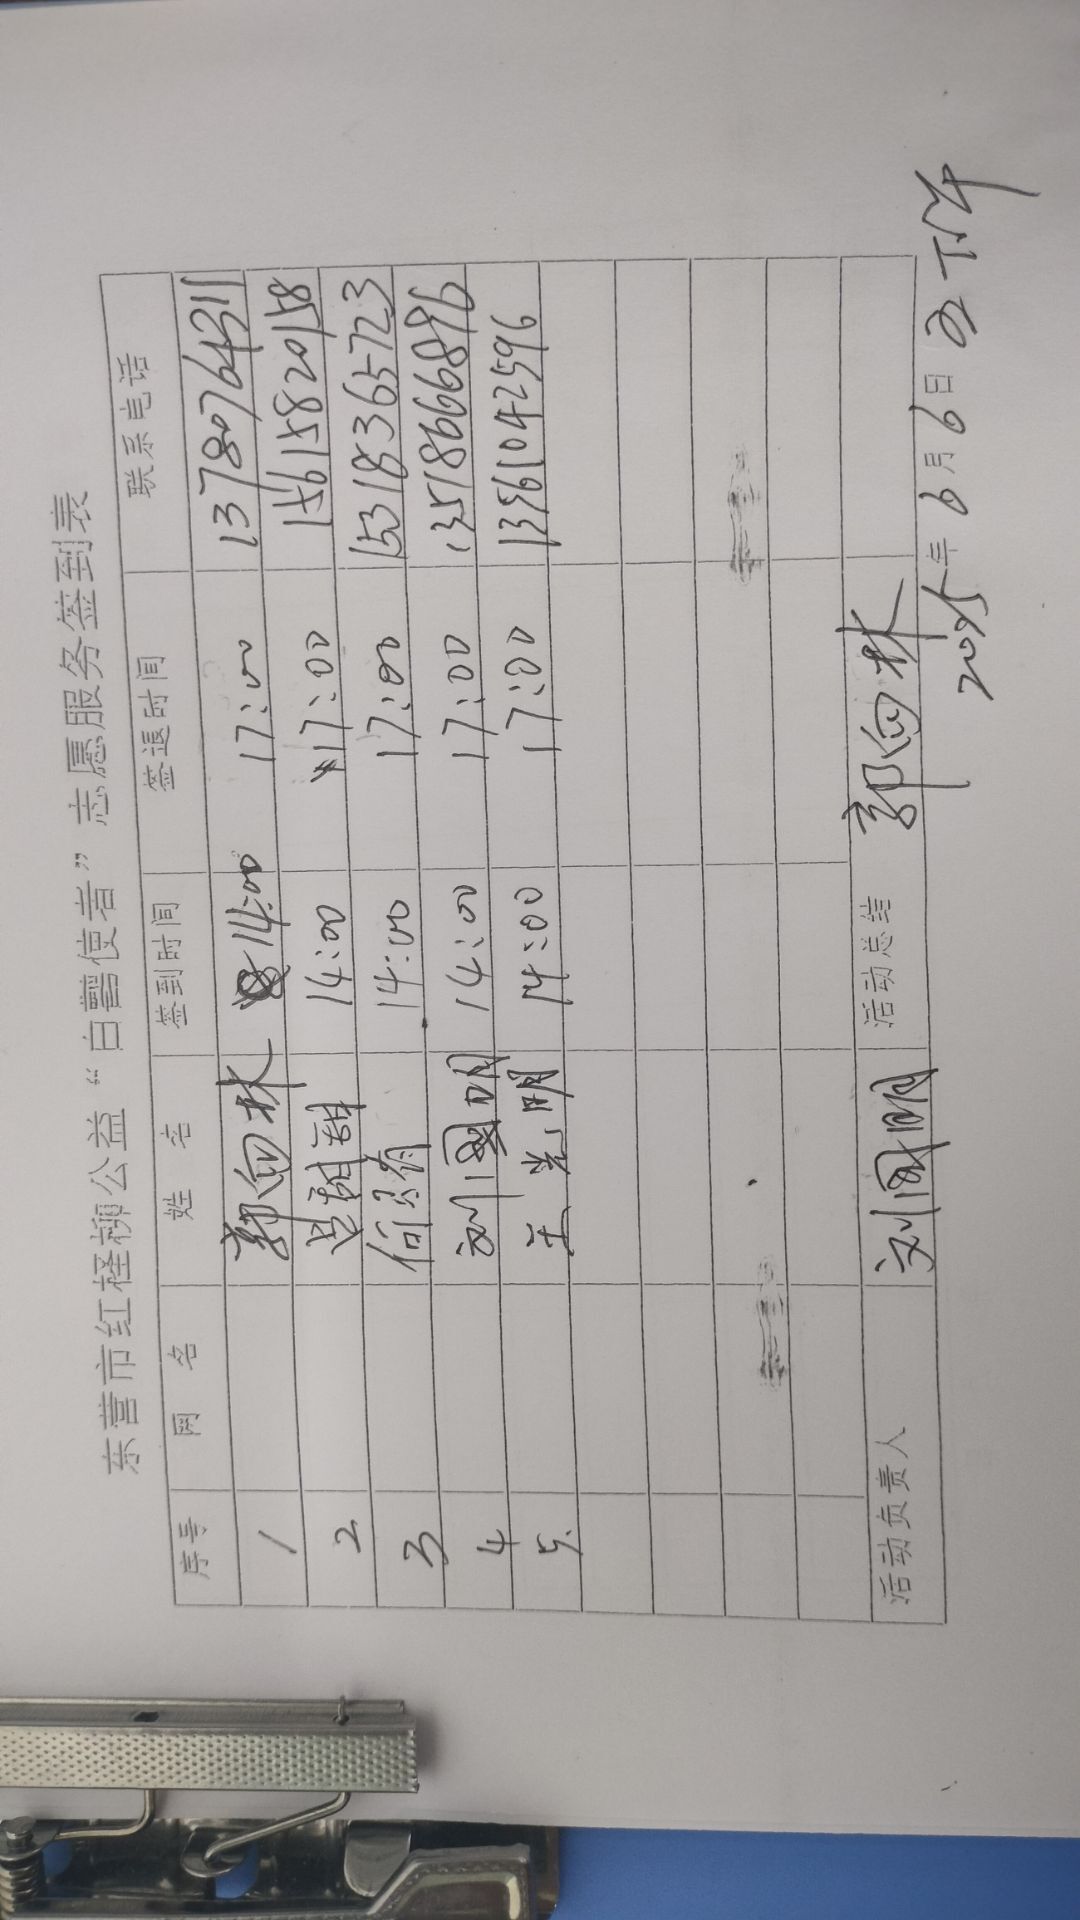 东营市红柽柳公益“白鹳使者”志愿服务签到表
序号 网 名 姓 名 签到时间 签退时间 联系电话
1 郭向林 14:00 17:00 13780764311
2 吕甜甜 14:00 17:00 15615820158
3 14:00 17:00 15318365723
4 刘国明 14:00 17:00 13518666896
5. 王光明 14:00 17:00 13561042596
活动负责人 刘国明 活动总结 郭向林
2025年6月6日 下午